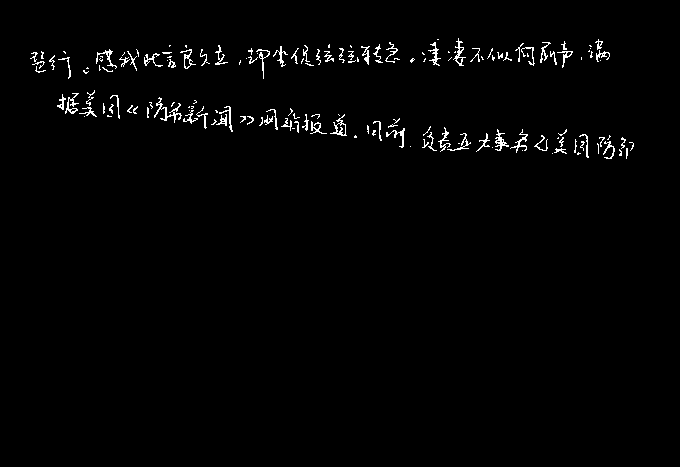 琵行。感我此言良久立,却坐促弦弦转急。凄凄不似向前声,满
据美国《防务新闻》网站报道,日前,负责亚太事务的美国防部